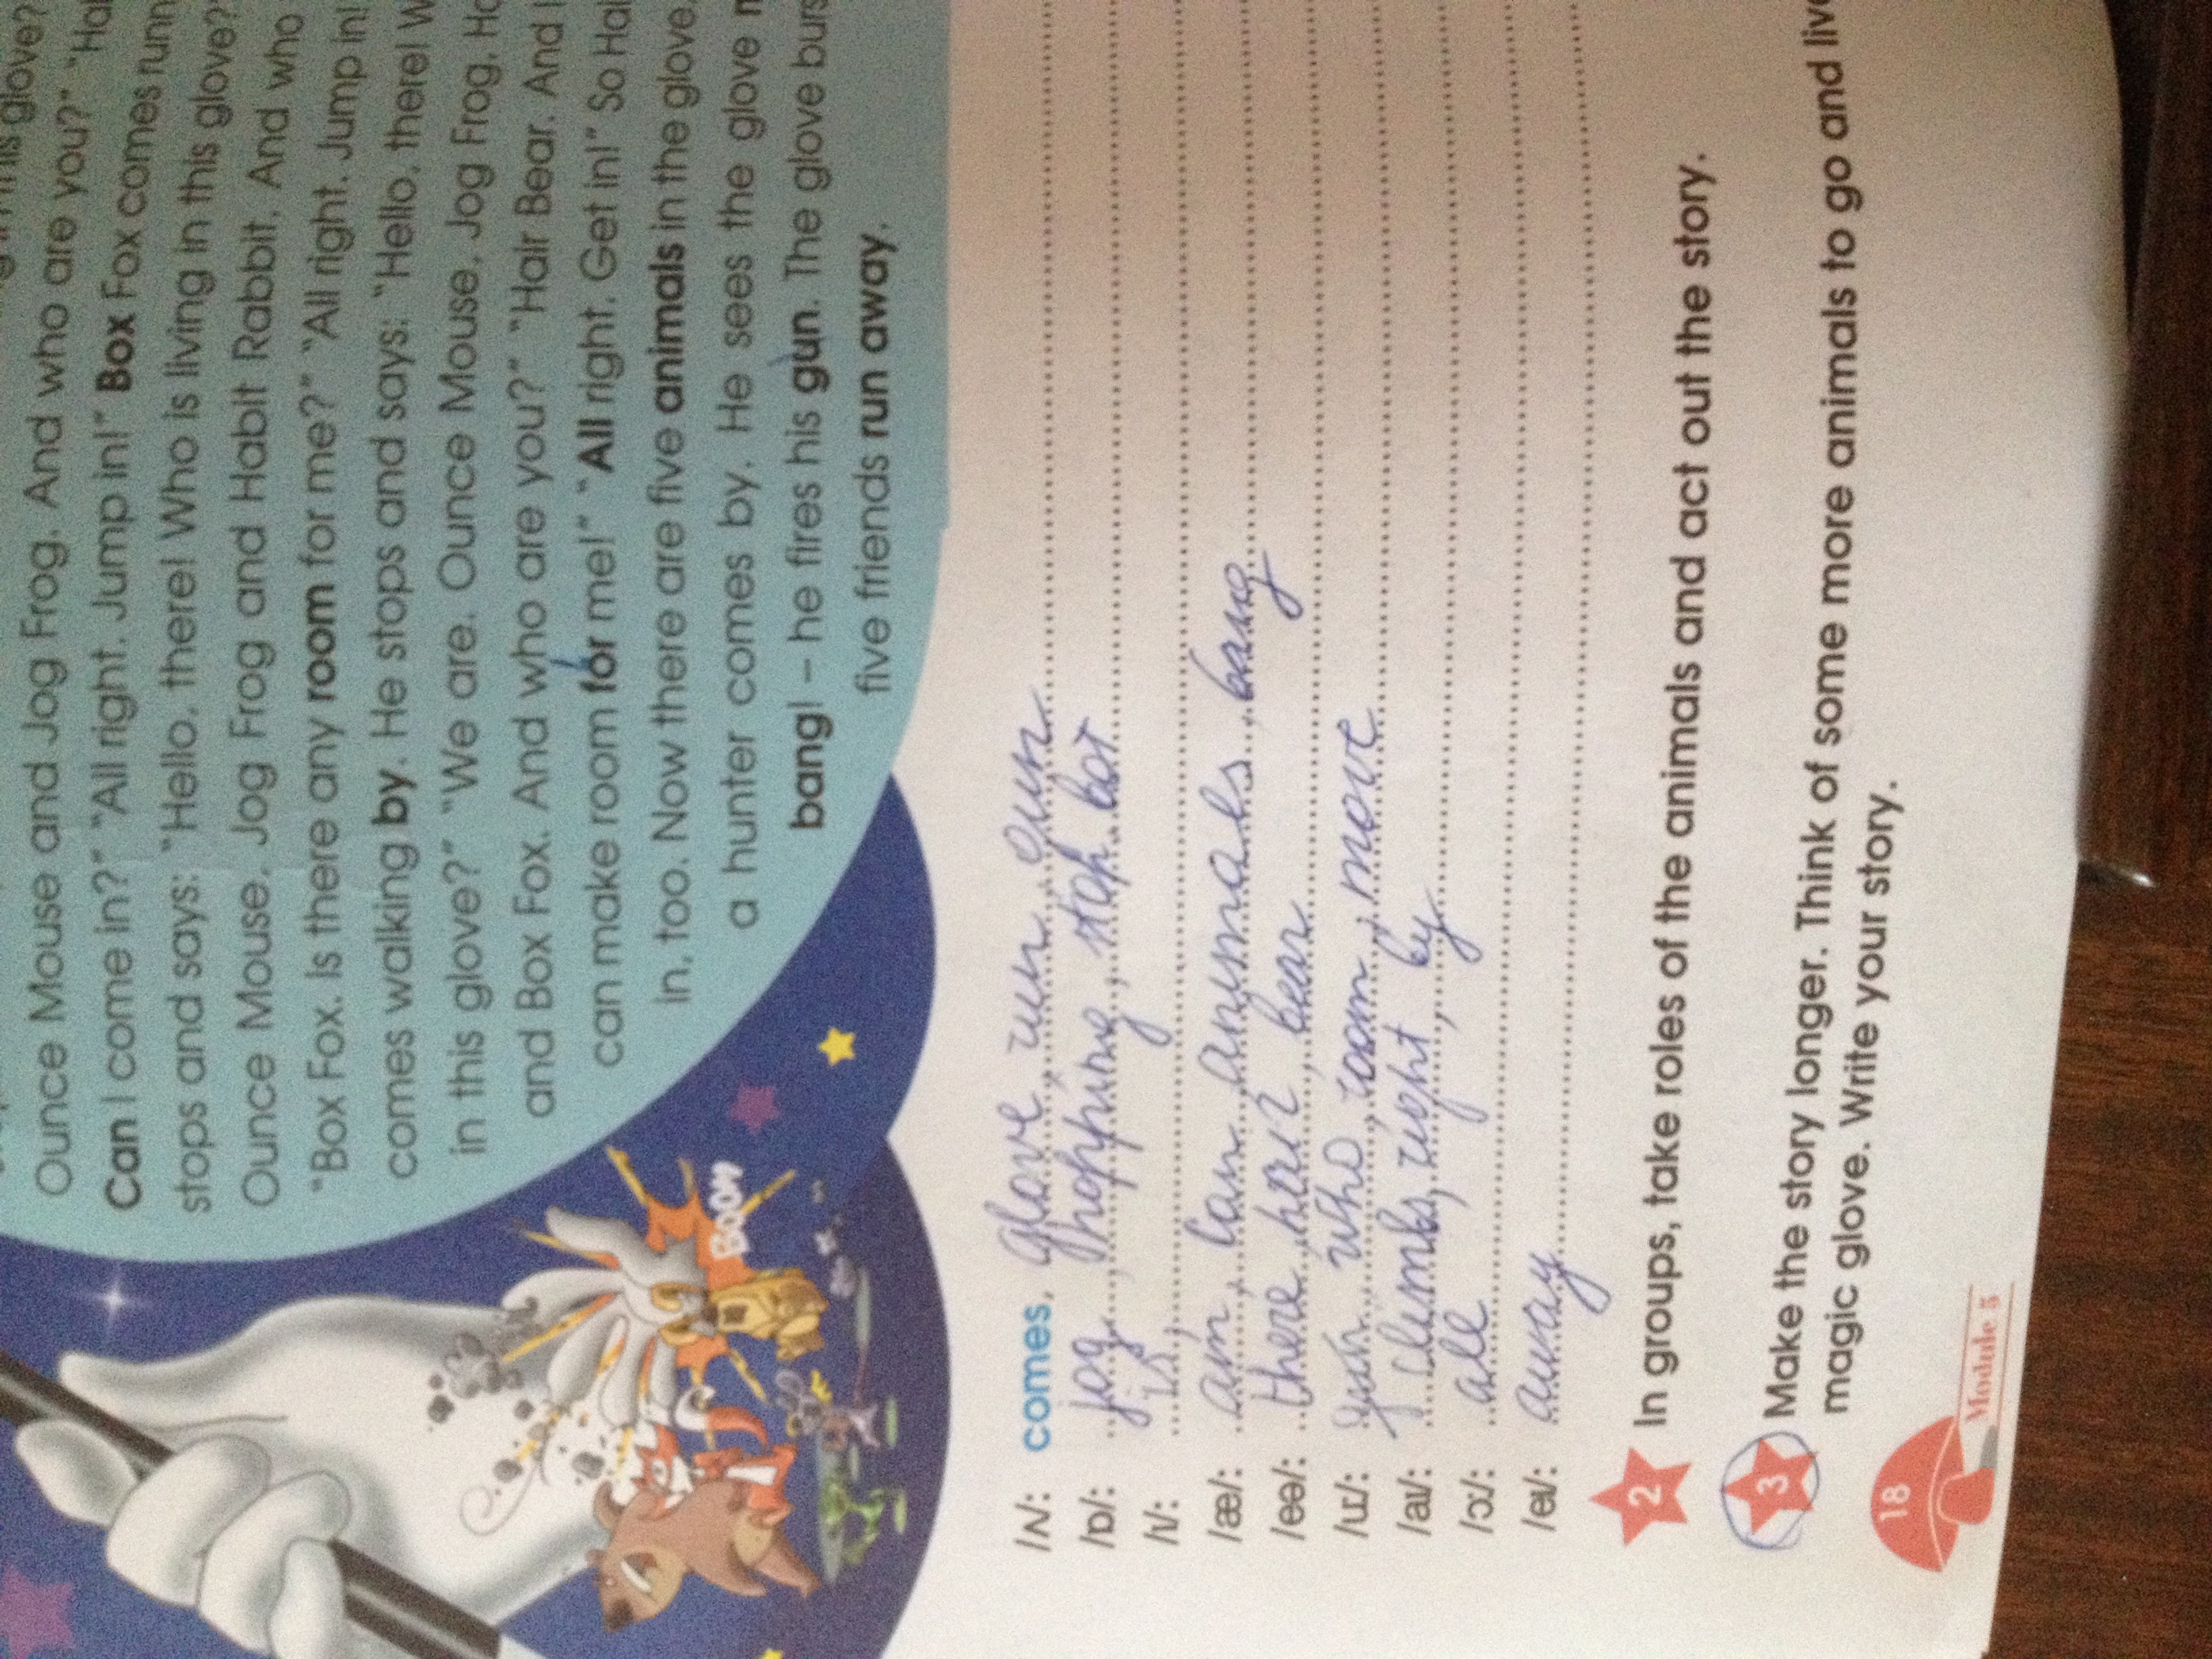 this glove?
Ounce Mouse and Jog Frog. And who are you?" "Ha
Can I come in?" "All right. Jump in!" Box Fox comes runn
stops and says: "Hello, there! Who is living in this glove?"
Ounce Mouse, Jog Frog and Habit Rabbit. And who
"Box Fox. Is there any room for me?" "All right. Jump in!
comes walking by. He stops and says: "Hello, there! W
in this glove?" "We are. Ounce Mouse, Jog Frog, Ha
and Box Fox. And who are you?" "Hair Bear. And I
can make room for me!" "All right. Get in!" So Hai
in, too. Now there are five animals in the glove.
a hunter comes by. He sees the glove m
bang! – he fires his gun. The glove burs
five friends run away.
BOOM
/ʌ/: comes, glove, run gun
/ɒ/: jog, hopping, stop box
/ɪ/: is
/æ/: am, can animals, bang
/eə/: there, hair, bear
/uː/: who, room, move
/aɪ/: I climbs, right, by
/ɔː/: all
/eɪ/: away
2 In groups, take roles of the animals and act out the story.
3 Make the story longer. Think of some more animals to go and live
magic glove. Write your story.
18 Module 5